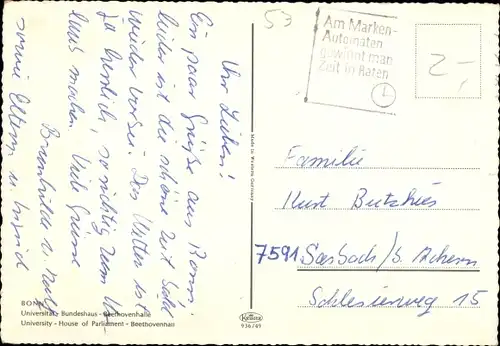 53
Am Marken-
Automaten
gewinnt man
Zeit in Raten
2,-
Ihr Lieben!
Ein paar Grüße aus Bonn.
Leider ist die schöne Zeit bald
wieder vorbei. Das Wetter ist
so herrlich, so richtig zum Ur-
laub machen. Viele Grüße
Brunhilde u. Ralf
sowie Eltern u. Ingrid
Made in Western Germany
Familie
Kurt
7591 Sasbach/b. Achern
Schlesierweg 15
BONN
Universität - Bundeshaus - Beethovenhalle
University - House of Parliament - Beethovenhall
Krüger
936/49